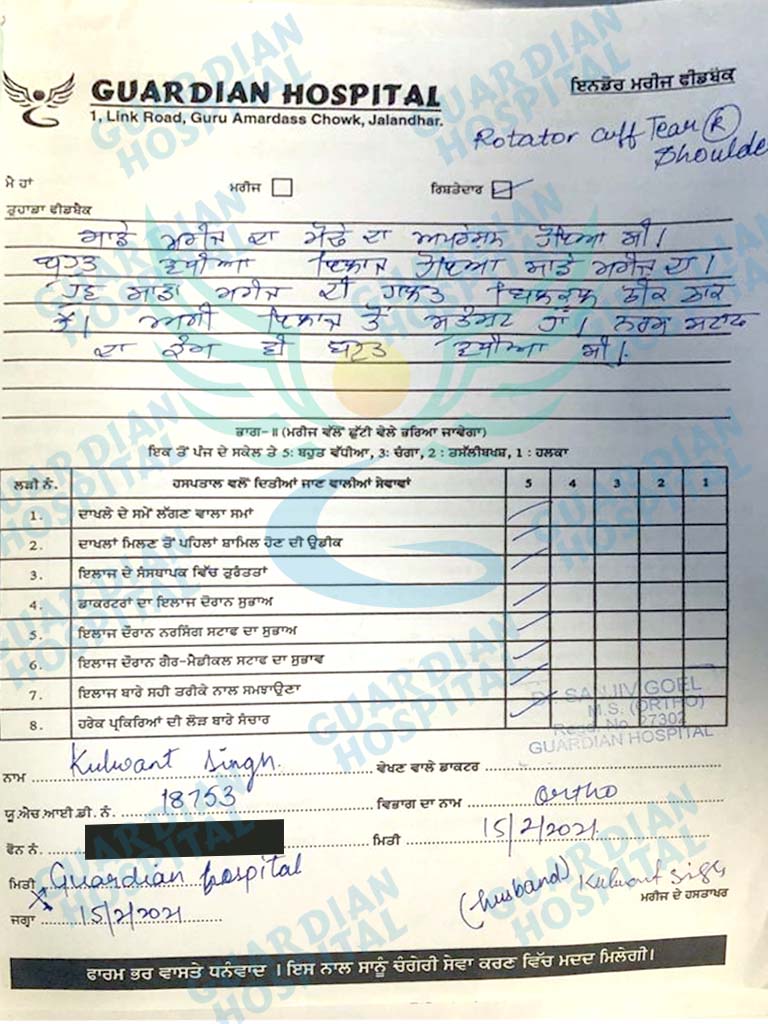 GUARDIAN HOSPITAL
1, Link Road, Guru Amardass Chowk, Jalandhar.
ਇਨਡੋਰ ਮਰੀਜ ਫੀਡਬੈਕ
Rotator Cuff Tear (R)
Shoulder
ਮੈ ਹਾਂ ਮਰੀਜ ਰਿਸ਼ਤੇਦਾਰ
ਤੁਹਾਡਾ ਫੀਡਬੈਕ
ਸਾਡੇ ਮਰੀਜ ਦਾ ਮੋਢੇ ਦਾ ਅਪਰੇਸ਼ਨ ਹੋਇਆ ਸੀ।
ਬਹੁਤ ਵਧੀਆ ਇਲਾਜ ਹੋਇਆ ਸਾਡੇ ਮਰੀਜ ਦਾ।
ਹੁਣ ਸਾਡਾ ਮਰੀਜ ਦੀ ਹਾਲਤ ਬਿਲਕੁਲ ਠੀਕ ਠਾਕ
ਹੈ। ਅਸੀ ਇਲਾਜ ਤੋਂ ਸੰਤੁਸ਼ਟ ਹਾਂ। ਨਰਸ ਸਟਾਫ
ਦਾ ਕੰਮ ਵੀ ਬਹੁਤ ਵਧੀਆ ਸੀ।
ਭਾਗ-II (ਮਰੀਜ ਵੱਲੋਂ ਛੁੱਟੀ ਵੇਲੇ ਭਰਿਆ ਜਾਵੇਗਾ)
ਇਕ ਤੋਂ ਪੰਜ ਦੇ ਸਕੇਲ ਤੇ 5: ਬਹੁਤ ਵੱਧੀਆ, 3: ਚੰਗਾ, 2 : ਤਸੱਲੀਬਖਸ਼, 1 : ਹਲਕਾ
ਲੜੀ ਨੰ. ਹਸਪਤਾਲ ਵਲੋਂ ਦਿਤੀਆਂ ਜਾਣ ਵਾਲੀਆਂ ਸੇਵਾਵਾਂ 5 4 3 2 1
1. ਦਾਖਲੇ ਦੇ ਸਮੇਂ ਲੱਗਣ ਵਾਲਾ ਸਮਾਂ
2. ਦਾਖਲਾਂ ਮਿਲਣ ਤੋਂ ਪਹਿਲਾਂ ਸ਼ਾਮਿਲ ਹੋਣ ਦੀ ਉਡੀਕ
3. ਇਲਾਜ ਦੇ ਸੰਸਥਾਪਕ ਵਿੱਚ ਤੁਰੰਤਤਾਂ
4. ਡਾਕਰਟਰਾਂ ਦਾ ਇਲਾਜ ਦੌਰਾਨ ਸੁਭਾਅ
5. ਇਲਾਜ ਦੌਰਾਨ ਨਰਸਿੰਗ ਸਟਾਫ ਦਾ ਸੁਭਾਅ
6. ਇਲਾਜ ਦੌਰਾਨ ਗੈਰ-ਮੈਡੀਕਲ ਸਟਾਫ ਦਾ ਸੁਭਾਵ
7. ਇਲਾਜ ਬਾਰੇ ਸਹੀ ਤਰੀਕੇ ਨਾਲ ਸਮਝਾਉਣਾ
8. ਹਰੇਕ ਪ੍ਰਕਿਰਿਆਂ ਦੀ ਲੋੜ ਬਾਰੇ ਸੰਚਾਰ
Dr. SANJIV GOEL
M.S. (ORTHO)
Regd. No. 27302
GUARDIAN HOSPITAL
ਨਾਮ Kulwant Singh. ਵੇਖਣ ਵਾਲੇ ਡਾਕਟਰ
ਯੂ.ਐਚ.ਆਈ.ਡੀ. ਨੰ. 18753 ਵਿਭਾਗ ਦਾ ਨਾਮ Ortho
ਫੋਨ ਨੰ. ਮਿਤੀ 15/2/2021
ਮਿਤੀ Guardian hospital
(husband) Kulwant Singh
ਜਗ੍ਹਾ 15/2/2021 ਮਰੀਜ ਦੇ ਹਸਤਾਖਰ
ਫਾਰਮ ਭਰ ਵਾਸਤੇ ਧਨੰਵਾਦ । ਇਸ ਨਾਲ ਸਾਨੂੰ ਚੰਗੇਰੀ ਸੇਵਾ ਕਰਣ ਵਿੱਚ ਮਦਦ ਮਿਲੇਗੀ।